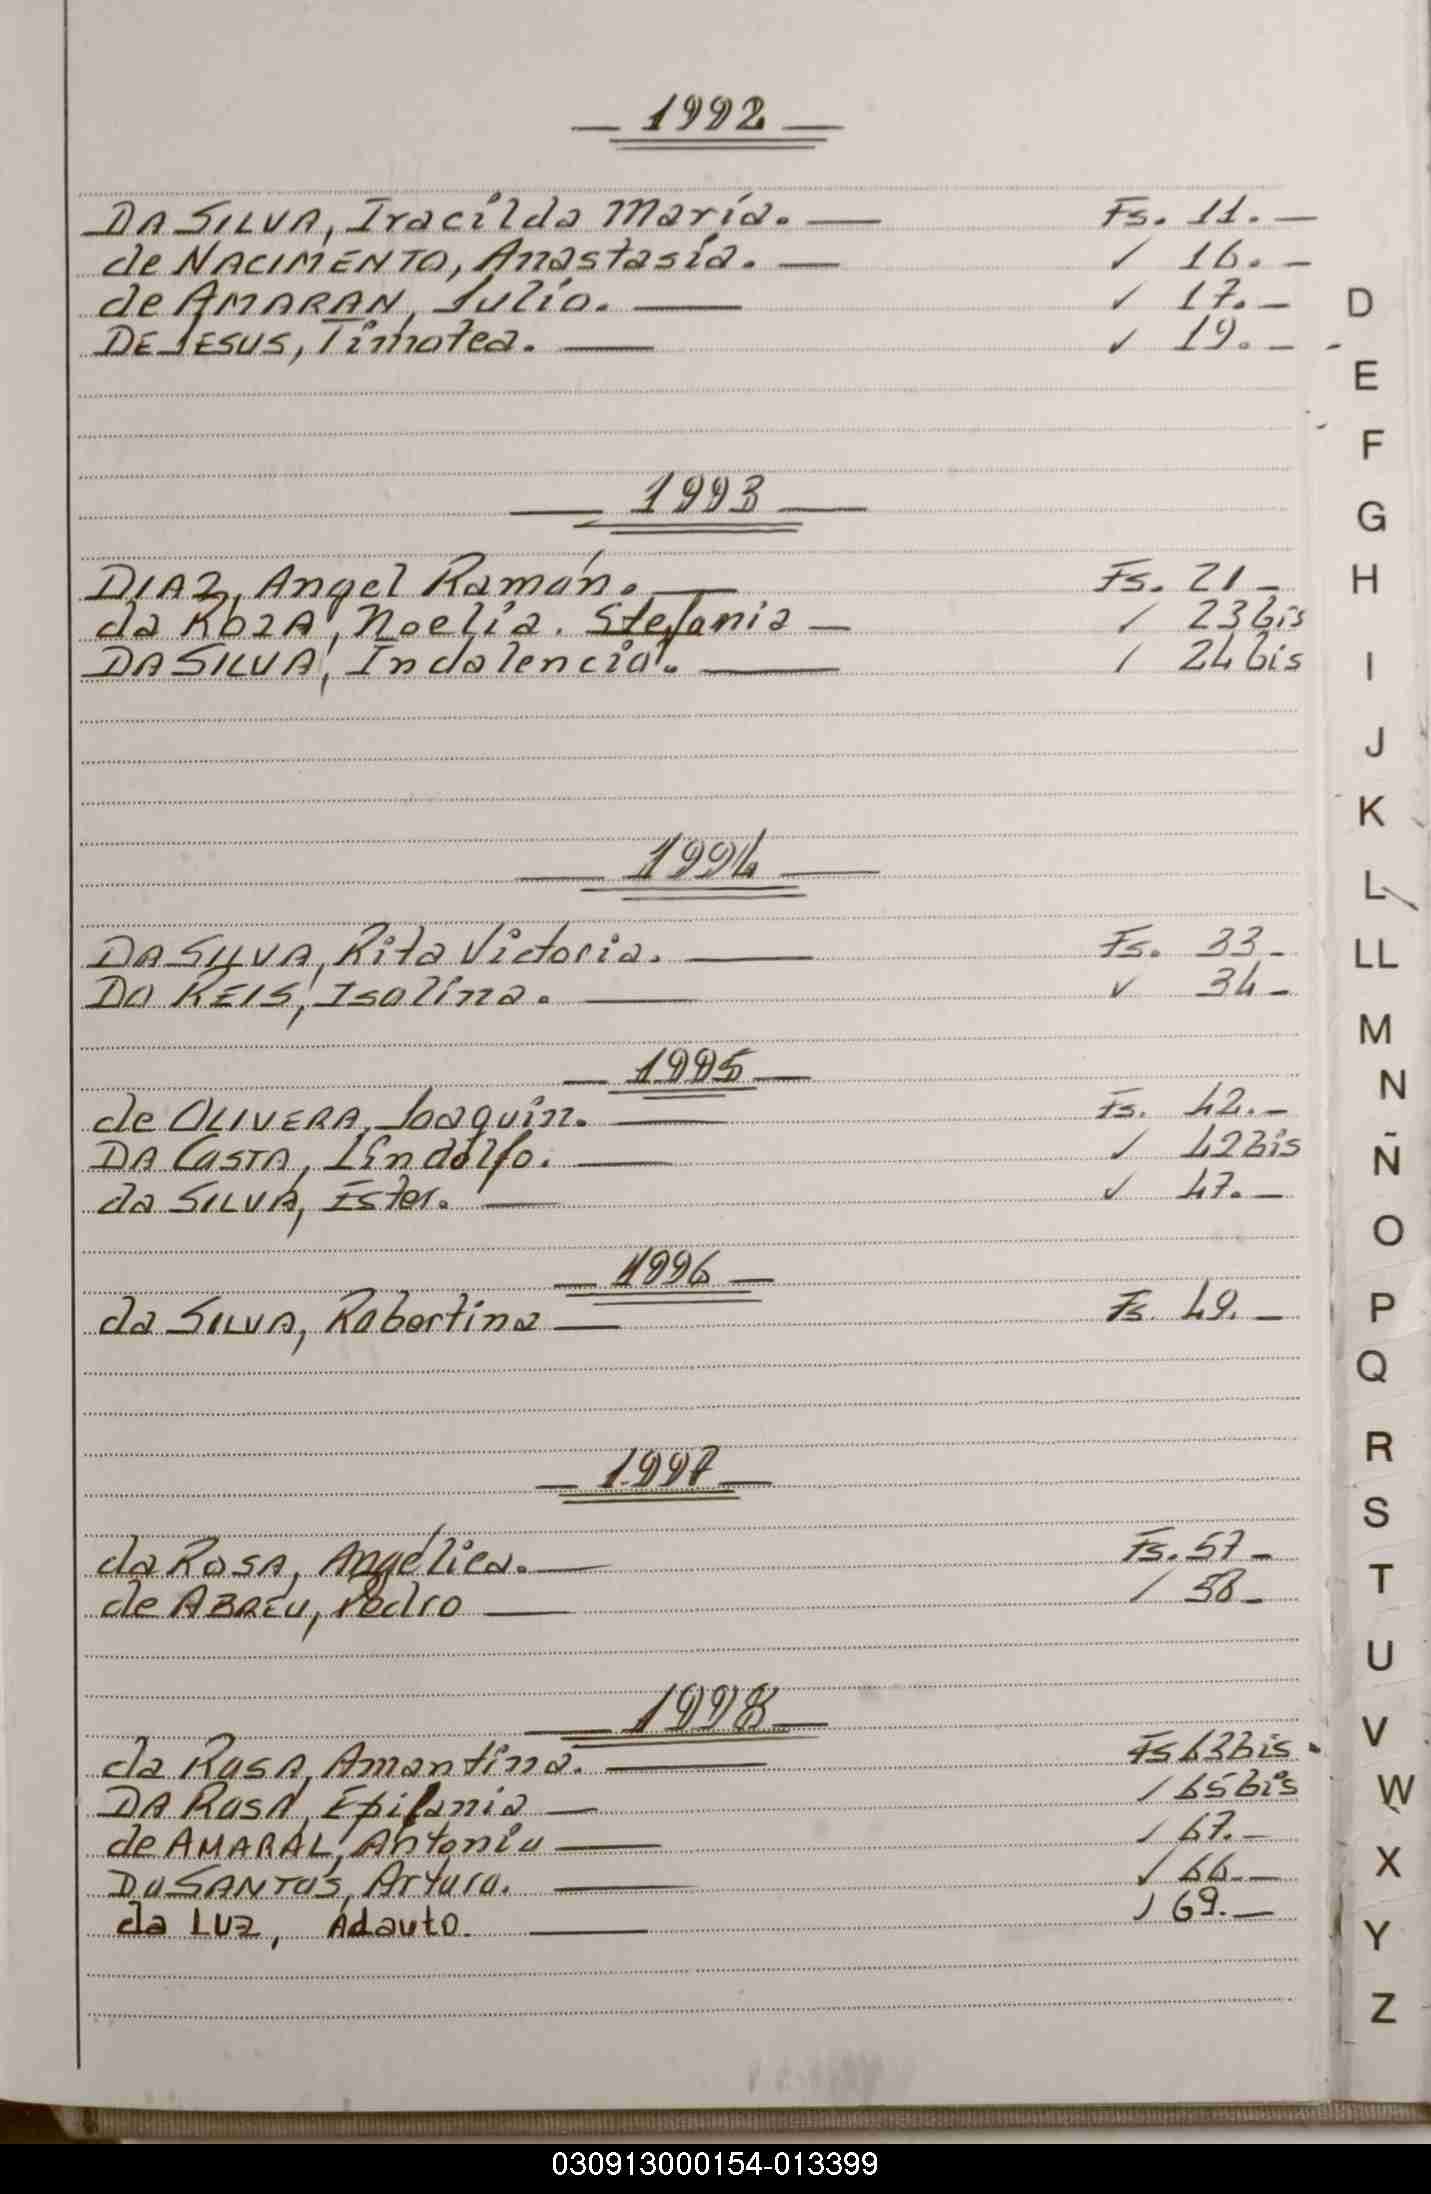 1992
DA SILVA, Iracilda María. Fs. 11.
de NACIMENTO, Anastasia. ✓ 16.
de AMARAN, Julio. ✓ 17.
DE JESUS, Timotea. ✓ 19.
1993
DIAZ, Angel Ramón. Fs. 21
da ROZA, Noelia. Stefania / 23 bis
DA SILVA, Indalencio. / 24 bis
1994
DA SILVA, Rita Victoria. Fs. 33
DO REIS, Isolina. ✓ 34
1995
de OLIVERA, Joaquin. Fs. 42.
DA COSTA, Lindolfo. / 42 bis
da SILVA, Ester. ✓ 47.
1996
da SILVA, Robertina Fs. 49.
1997
da ROSA, Angélica. Fs. 57
de ABREU, Pedro / 58
1998
da ROSA, Amantina. Fs 63 bis
DA ROSA, Epifania / 65 bis
de AMARAL, Antonio / 67.
DO SANTOS, Arturo. ✓ 66.
da LUZ, Adauto. / 69.
D
E
F
G
H
I
J
K
L
LL
M
N
Ñ
O
P
Q
R
S
T
U
V
W
X
Y
Z
030913000154-013399